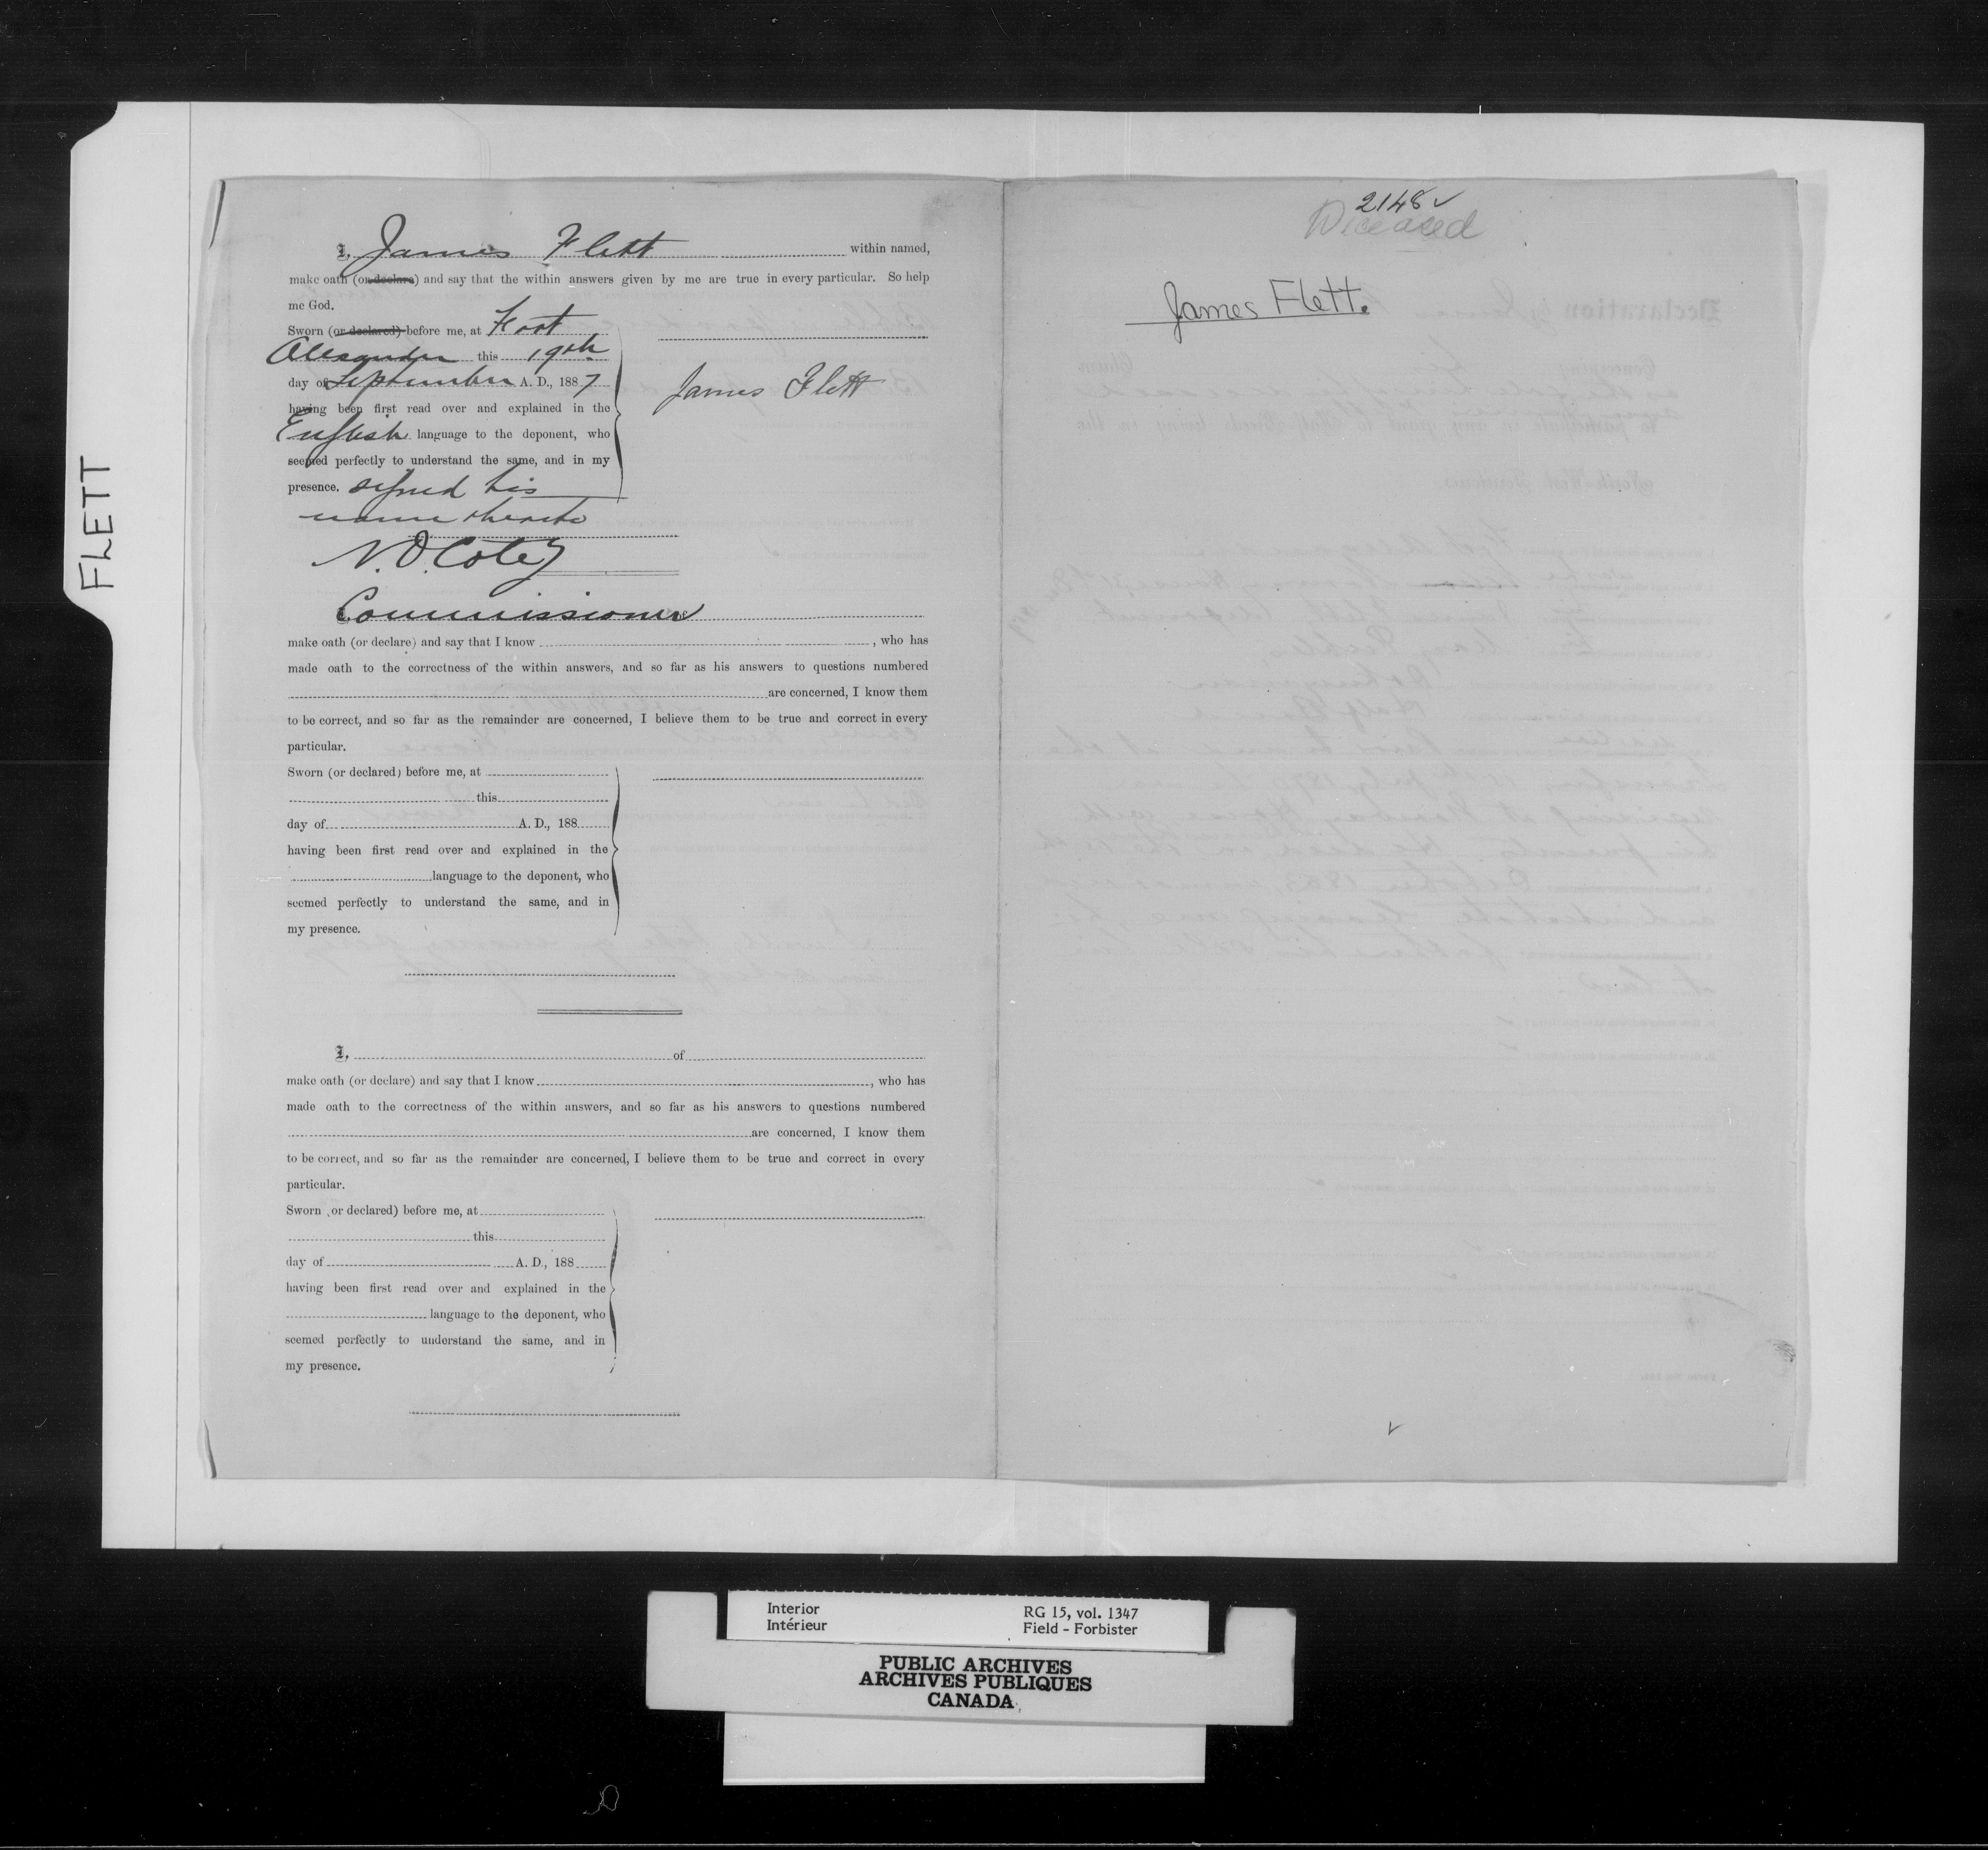 FLETT
I, James Flett within named,
make oath (or declare) and say that the within answers given by me are true in every particular. So help
me God.
Sworn (or declared) before me, at Fort
Alexander this 19th
day of September A. D., 1887
having been first read over and explained in the
English language to the deponent, who
seemed perfectly to understand the same, and in my
presence. signed his
name thereto
James Flett
N. O. Coté
Commissioner
make oath (or declare) and say that I know , who has
made oath to the correctness of the within answers, and so far as his answers to questions numbered
are concerned, I know them
to be correct, and so far as the remainder are concerned, I believe them to be true and correct in every
particular.
Sworn (or declared) before me, at
this
day of A. D., 188
having been first read over and explained in the
language to the deponent, who
seemed perfectly to understand the same, and in
my presence.
I, of
make oath (or declare) and say that I know , who has
made oath to the correctness of the within answers, and so far as his answers to questions numbered
are concerned, I know them
to be correct, and so far as the remainder are concerned, I believe them to be true and correct in every
particular.
Sworn (or declared) before me, at
this
day of A. D., 188
having been first read over and explained in the
language to the deponent, who
seemed perfectly to understand the same, and in
my presence.
2148
Deceased
James Flett.
Interior RG 15, vol. 1347
Intérieur Field - Forbister
PUBLIC ARCHIVES
ARCHIVES PUBLIQUES
CANADA